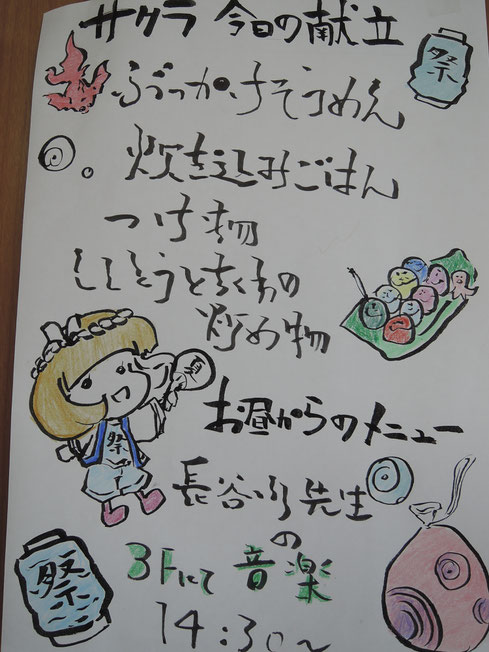 サクラ 今日の献立
祭
ぶっかけそうめん
炊き込みごはん
つけ物
ししとうとちくわの
炒め物
祭
お昼からのメニュー
長谷川先生
の
3Fにて 音楽
14:30〜
祭